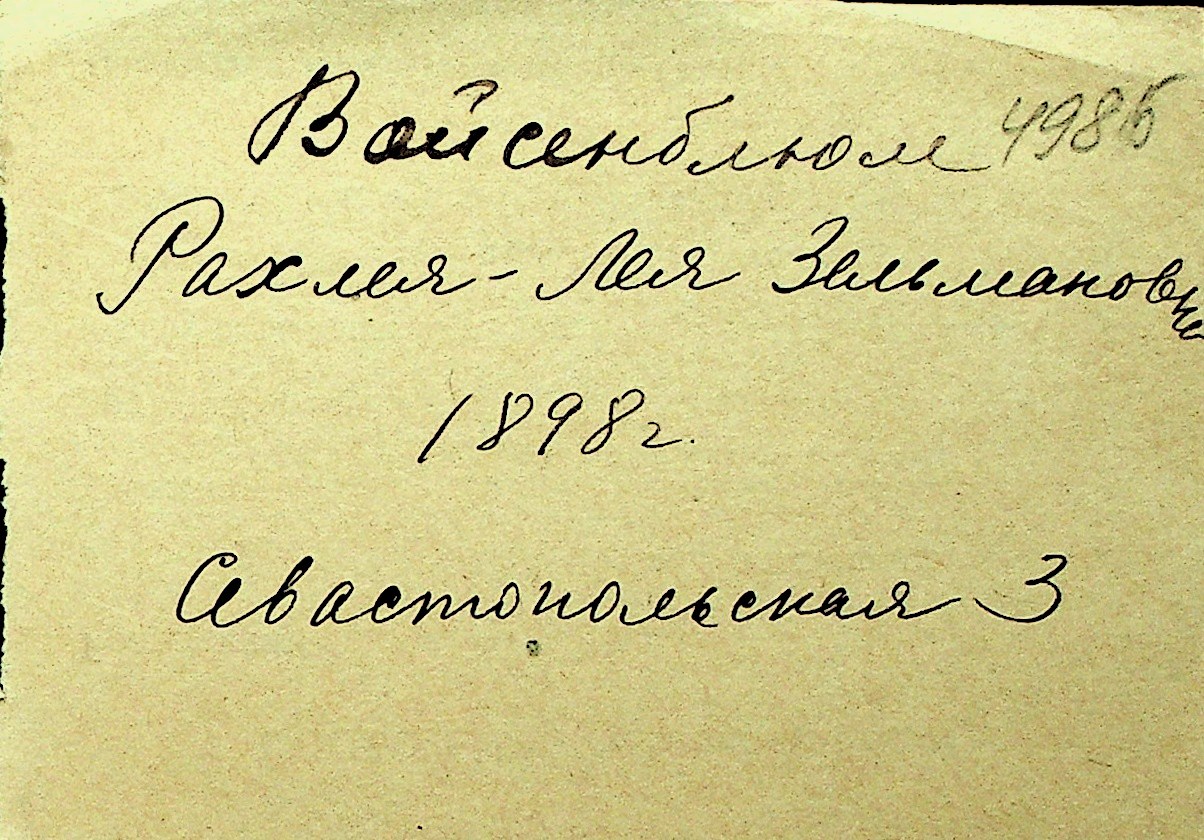 Вайсенблюм 4985
Рахлея - Лея Зельмановна
1898 г.
Севастопольская 3